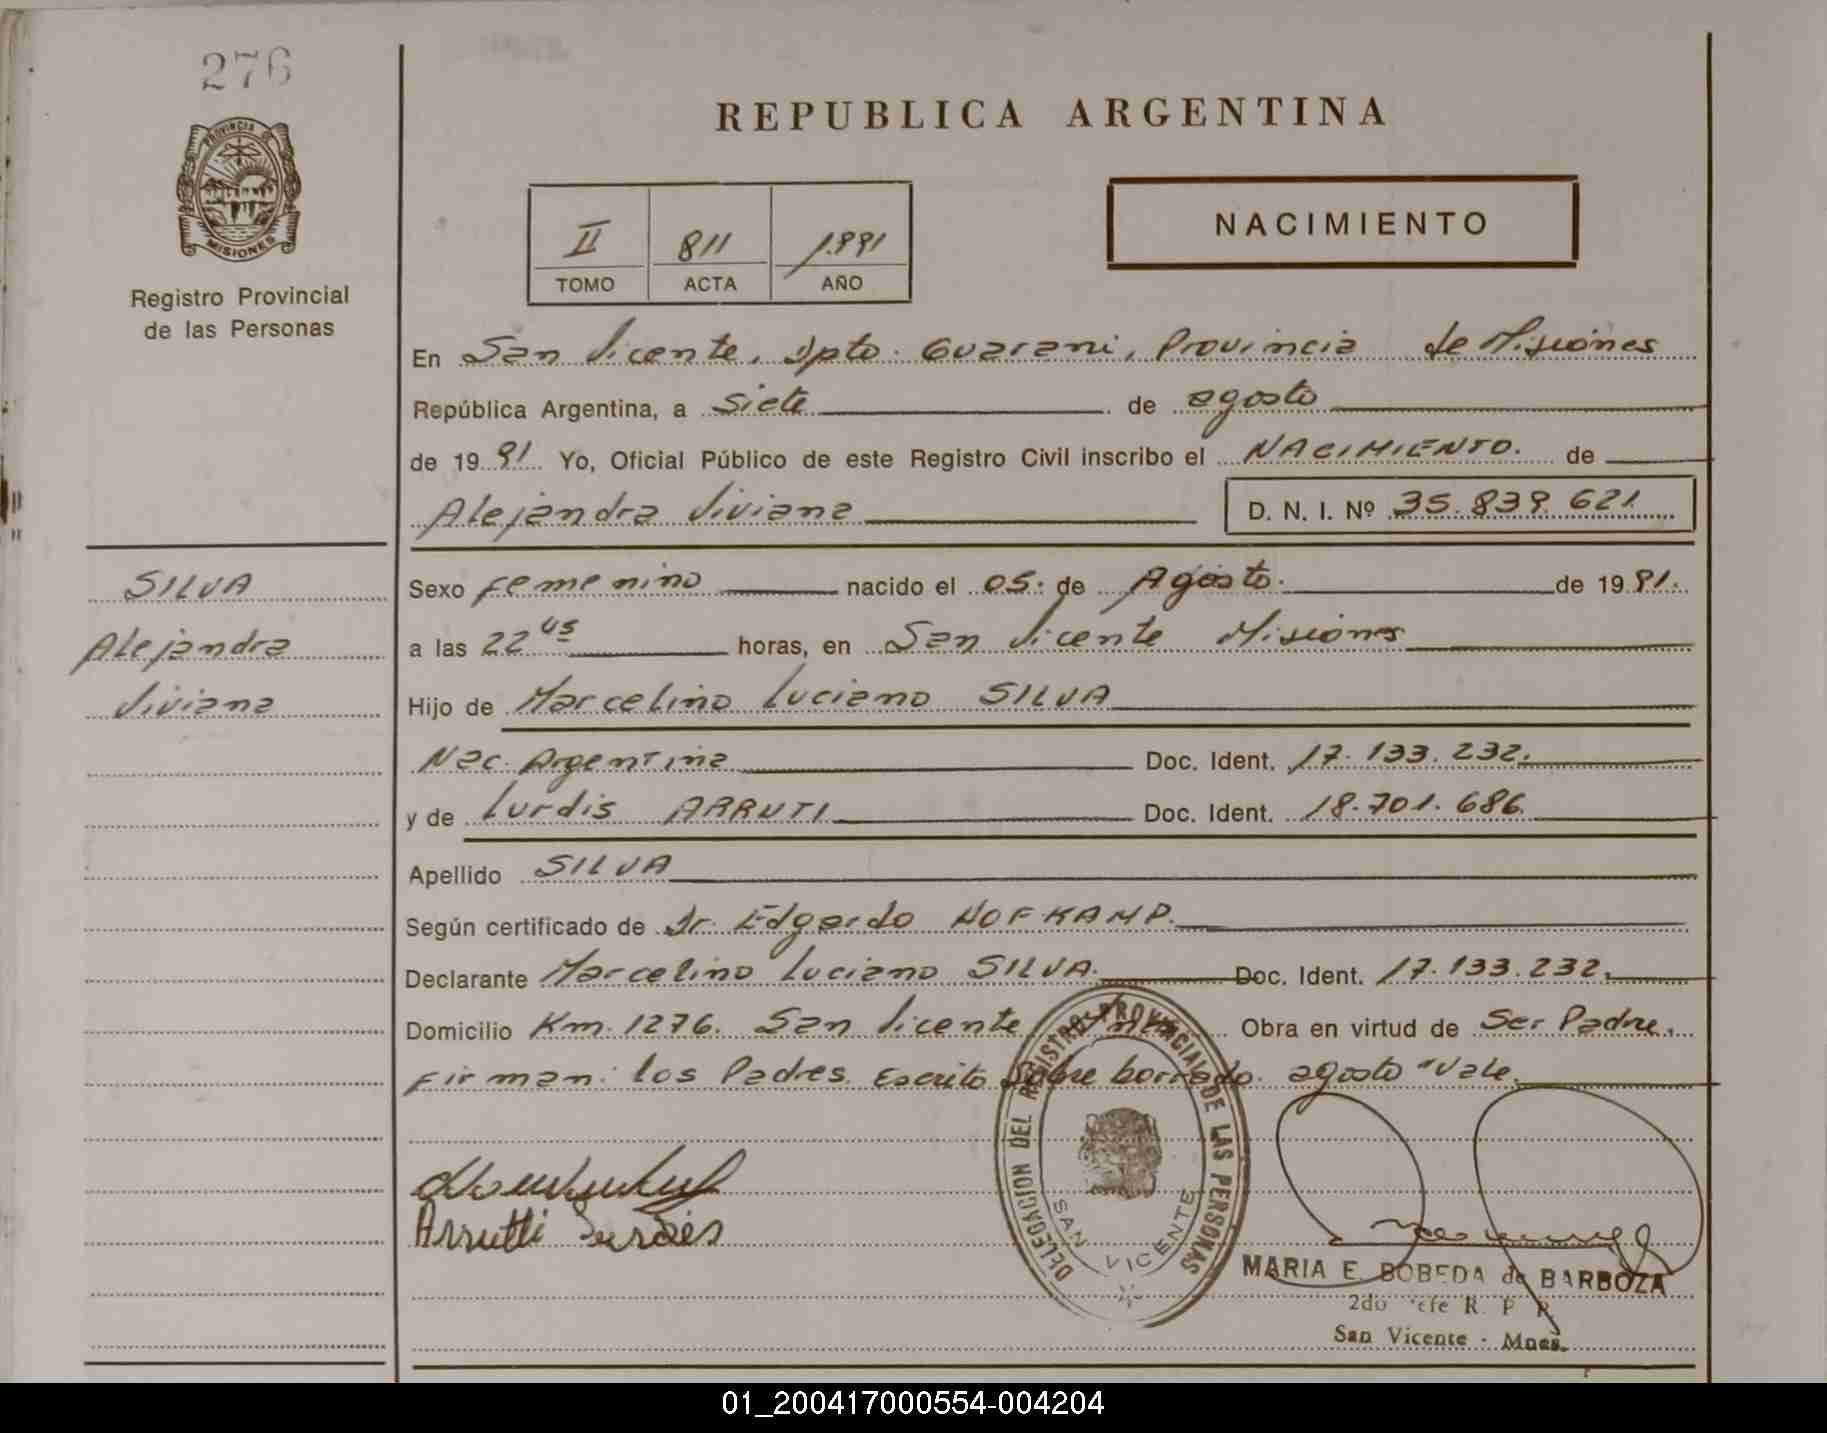 276
PROVINCIA
MISIONES
Registro Provincial
de las Personas
REPUBLICA ARGENTINA
II 811 1991
TOMO ACTA AÑO
NACIMIENTO
En San Vicente, Dpto. Guarani, Provincia de Misiones
República Argentina, a Siete de agosto
de 1991 Yo, Oficial Público de este Registro Civil inscribo el NACIMIENTO. de
Alejandra Viviana D. N. I. Nº 35.839.621
SILVA
Alejandra
Viviana
Sexo femenino nacido el 05. de Agosto. de 1991.
a las 22 45 horas, en San Vicente Misiones
Hijo de Marcelino Luciano SILVA
Nac. Argentina Doc. Ident. 17.133.232.
y de Lurdis ARRUTI Doc. Ident. 18.701.686
Apellido SILVA
Según certificado de Dr. Edgardo HOFKAMP.
Declarante Marcelino Luciano SILVA. Doc. Ident. 17.133.232.
Domicilio Km. 1276. San Vicente Obra en virtud de Ser Padre.
Firman: los Padres. Escrito Sobre borrado. agosto "Vale.
Arrutti Lurdes
DELEGACION DEL REGISTRO PROVINCIAL DE LAS PERSONAS
SAN VICENTE
MARIA E. BOBEDA de BARBOZA
2do Jefe R. P. P.
San Vicente - Mnes.
01_200417000554-004204